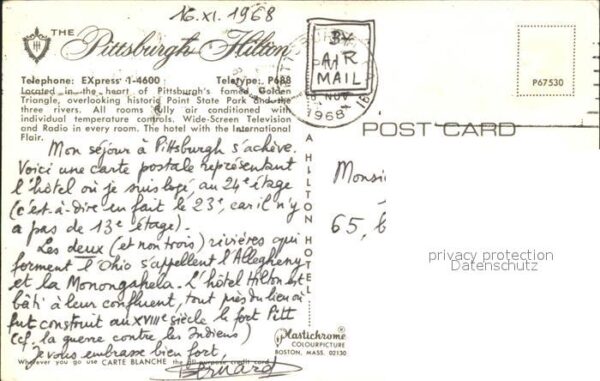 16.XI.1968
THE
Pittsburgh Hilton
Telephone: EXpress 1-4600 Teletype: P688
Located in the heart of Pittsburgh's famed Golden
Triangle, overlooking historic Point State Park and the
three rivers. All rooms fully air conditioned with
individual temperature controls. Wide-Screen Television
and Radio in every room. The hotel with the International
Flair.
BY
AIR
MAIL
1968
P67530
POST CARD
Mon séjour à Pittsburgh s'achève.
Voici une carte postale représentant
l'hôtel où je suis logé, au 24e étage
(c'est-à-dire en fait le 23e, car il n'y
a pas de 13e étage).
Les deux (et non trois) rivières qui
forment l'Ohio s'appellent l'Allegheny
et la Monongahela. L'hôtel Hilton est
bâti à leur confluent, tout près du lieu où
fut construit au XVIIIe siècle le fort Pitt
(cf. la guerre contre les Indiens)
Je vous embrasse bien fort,
Bernard
Wherever you go use CARTE BLANCHE the all-purpose credit card
A HILTON HOTEL
Monsi
65, b
privacy protection
Datenschutz
Plastichrome®
COLOURPICTURE
BOSTON, MASS. 02130